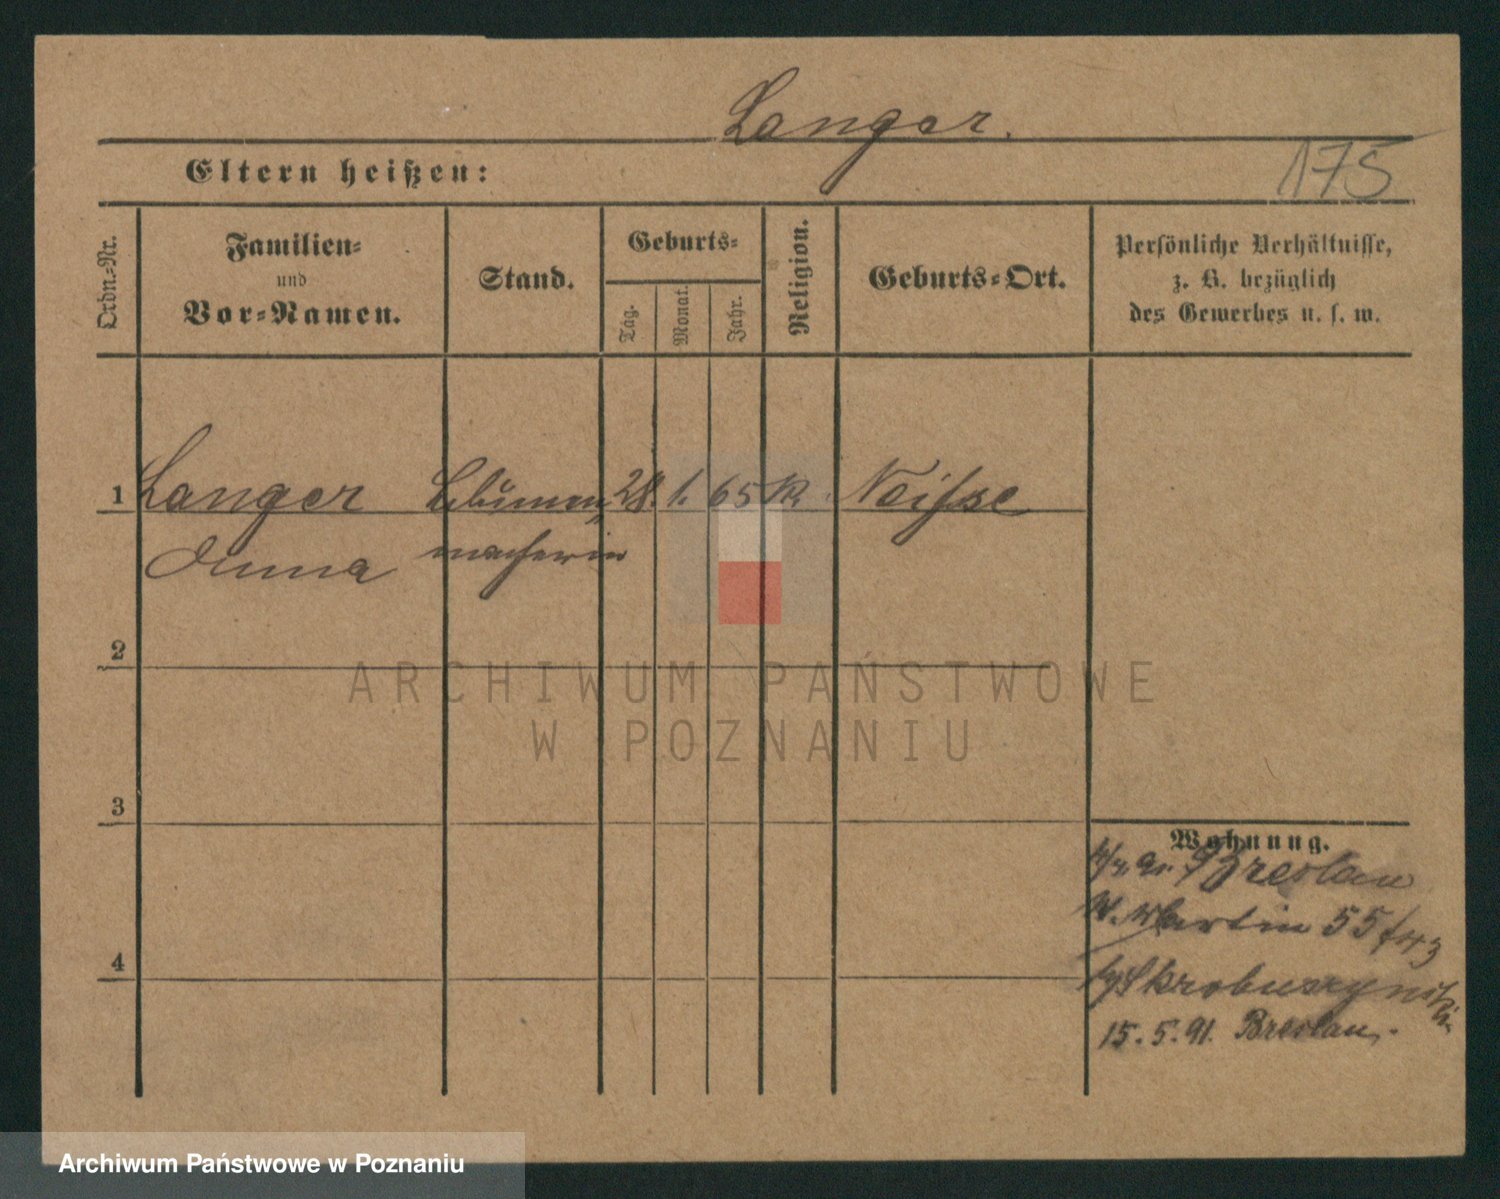 Langer.
175
Eltern heißen:
Ordn.-Nr.
Familien-
und
Vor-Namen.
Stand.
Geburts-
Tag.
Monat.
Jahr.
Religion.
Geburts-Ort.
Persönliche Verhältnisse,
z. B. bezüglich
des Gewerbes u. s. w.
1 Langer Blumen 28. 1. 65 K. Neisse
Anna macherin
2
ARCHIWUM PAŃSTWOWE
W POZNANIU
3
Wohnung.
Breslau
St. Martin 55
4
15. 5. 91. Breslau.
Archiwum Państwowe w Poznaniu